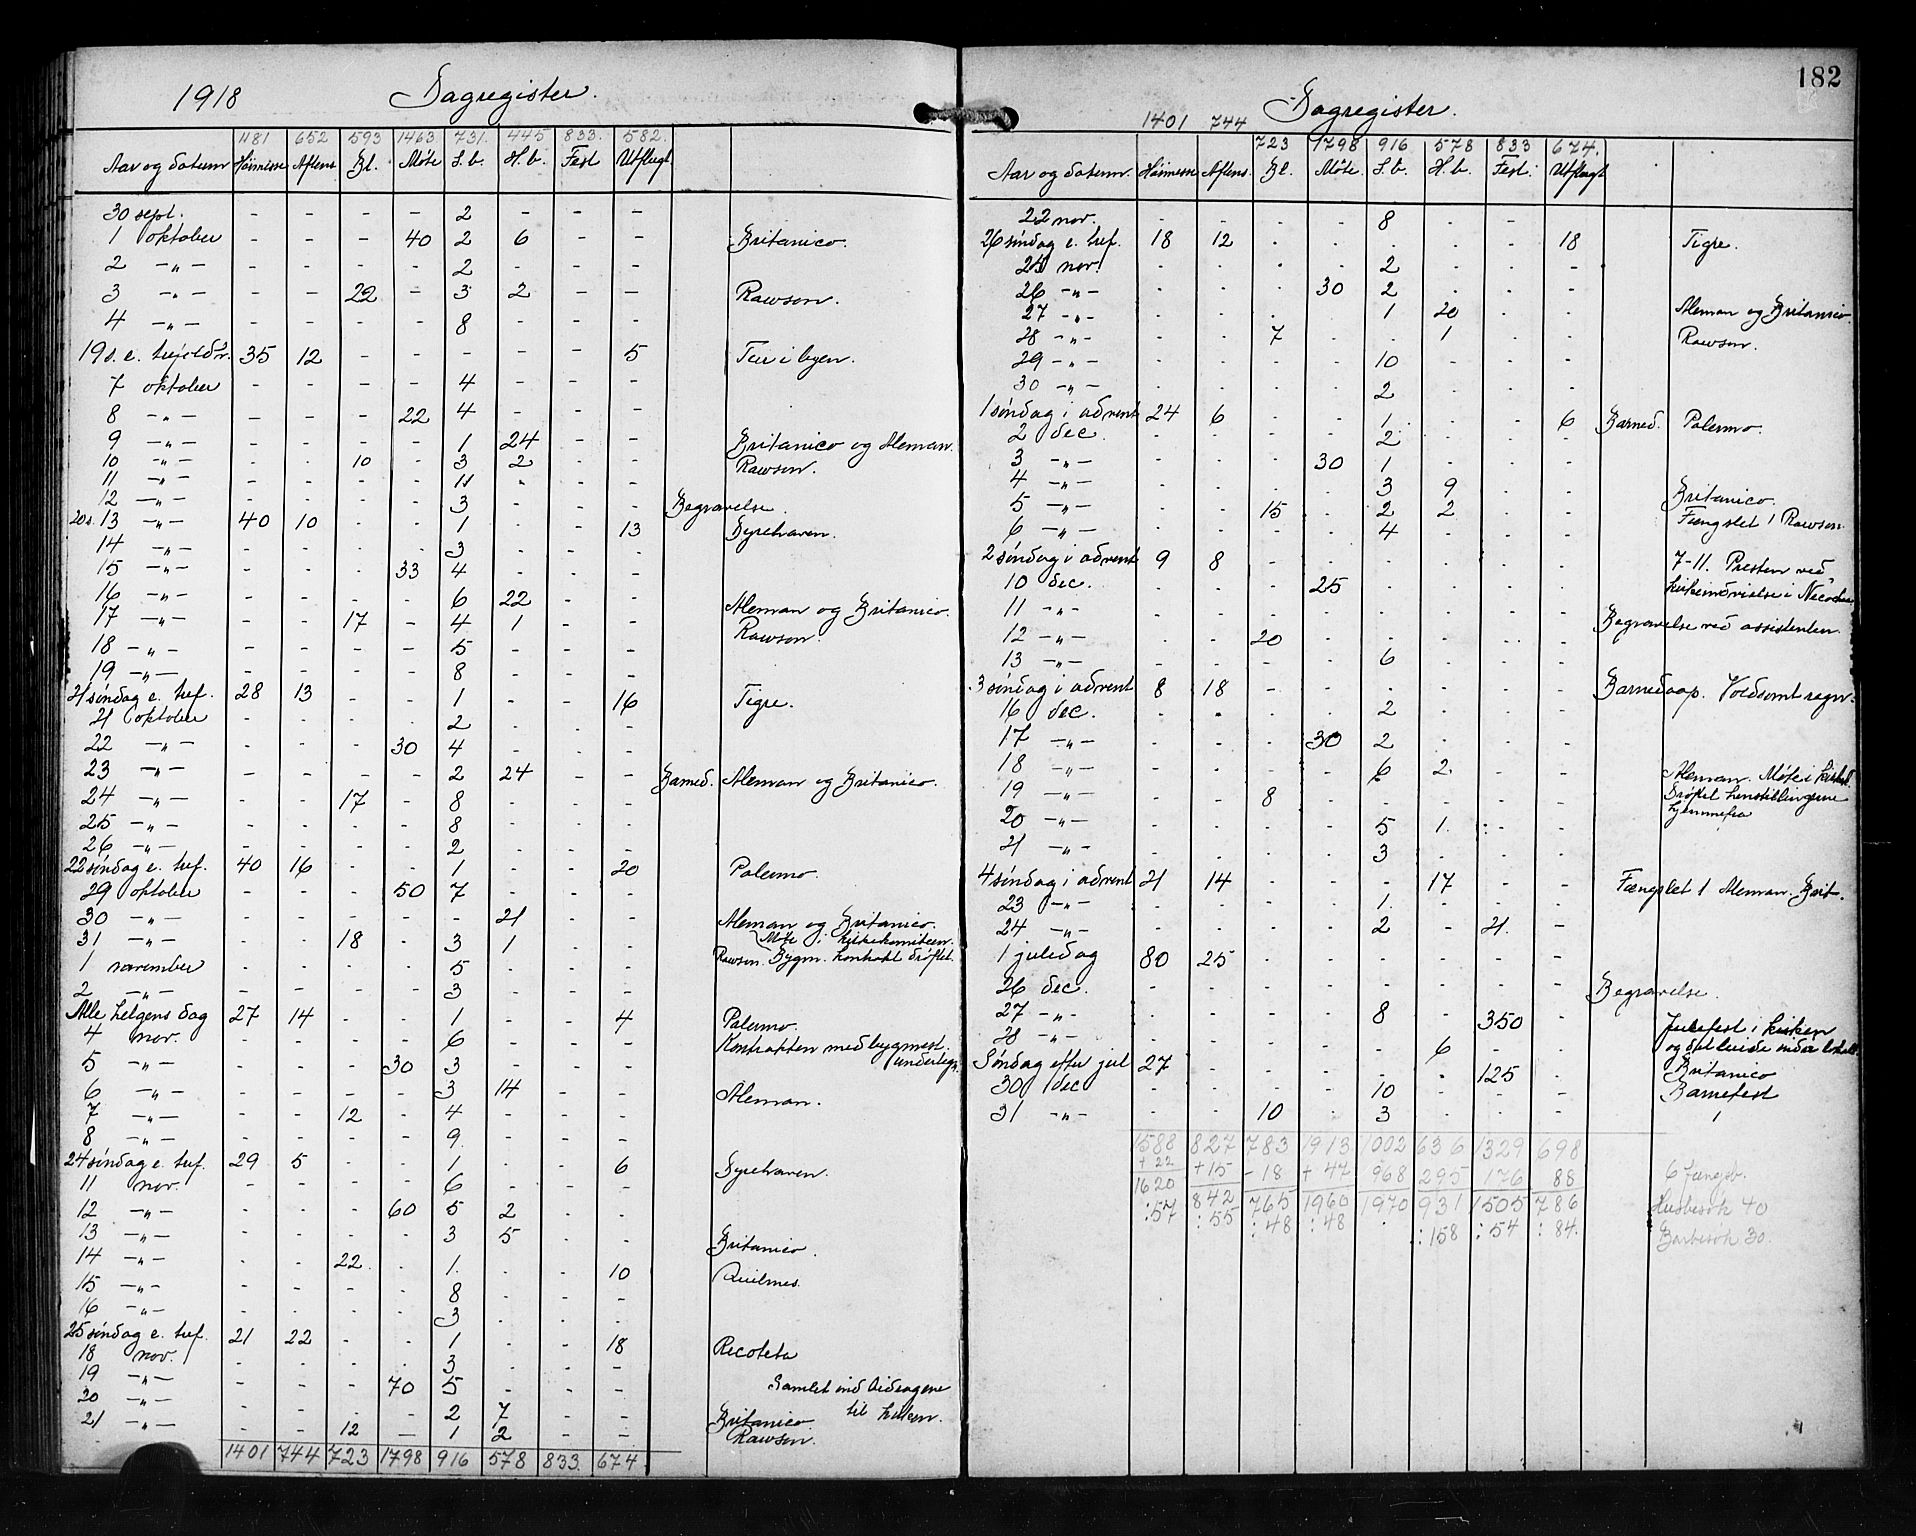 1918 Dagregister.
1181 652 593 1463 731. 445 833. 582.
Aar og datum Høimesse Aftens Bl. Møte S. b. H. b. Fest Utflugt
30 sept. - - - - 2 - - -
1 oktober - - - 40 2 6 - - Britanico.
2 -"- - - - - 2 - - -
3 -"- - - 22 - 3 2 - - Rawson.
4 -"- - - - - 8 - - -
19 s. e. 35 12 - - - - - 5 Tur i byen.
7 oktober - - - - 4 - - -
8 -"- - - - 22 4 - - -
9 -"- - - - - 1 24 - - Britanico og Aleman.
10 -"- - - 10 - 3 2 - - Rawson.
11 -"- - - - - 11 - - -
12 -"- - - - - 3 - - - Begravelse.
20s. 13 -"- 40 10 - - 1 - - 13 Dyrehaven.
14 -"- - - - - 3 - - -
15 -"- - - - 33 4 - - -
16 -"- - - - - 6 22 - - Aleman og Britanico.
17 -"- - - 17 - 4 1 - - Rawson.
18 -"- - - - - 5 - - -
19 -"- - - - - 8 - - -
21 søndag e. tref. 28 13 - - 1 - - 16 Tigre.
21 oktober - - - - 2 - - -
22 -"- - - - 30 4 - - -
23 -"- - - - - 2 24 - - Barned. Aleman og Britanico.
24 -"- - - 17 - 8 - - -
25 -"- - - - - 8 - - -
26 -"- - - - - 2 - - -
22 søndag e. tref. 40 16 - - 1 - - 20 Palermo.
29 oktober - - - 50 7 - - -
30 -"- - - - - - 21 - - Aleman og Britanico.
31 -"- - - 18 - 3 1 - - Møte i kirkekomiteen.
1 november - - - - 5 - - - Rawson. Bygm. kontrakt drøftet.
2 -"- - - - - 3 - - -
Alle helgens dag 27 14 - - 1 - - 4 Palermo.
4 nov. - - - - 6 - - - Kontrakten med bygmest.
5 -"- - - - 30 3 - - - undertegn.
6 -"- - - - - 3 14 - - Aleman.
7 -"- - - 12 - 4 - - -
8 -"- - - - - 9. - - -
24 søndag e. tref. 29 5 - - 1 - - 6 Dyrehaven.
11 nov. - - - - 6 - - -
12 -"- - - - 60 5 2 - -
13 -"- - - - - 3 5 - - Britanico.
14 -"- - - 22 - 1. - - 10 Quilmes.
15 -"- - - - - 8 - - -
16 -"- - - - - 3 - - -
25 søndag e. tref. 21 22 - - 1 - - 18 Recoleta
18 nov. - - - - 3 - - -
19 -"- - - - 70 5 - - - Samlet ind bidragene
20 -"- - - - - 2 7 - - til kirken.
Britanico
21 -"- - - 12 - 1 2 - - Rawson.
1401 744 723 1798 916 578 833. 674.
182
Dagregister.
1401 744 723 1798 916 578 833 674.
Aar og datum. Høimesse Aftens. Bl. Møte. S. b. H. b. Fest. Utflugt
22 nov. - - - - 8 - - -
26 søndag e. tref. 18 12 - - - - - 18 Tigre.
25 nov. - - - - 2 - - -
26 -"- - - - 30 2 - - -
27 -"- - - - - 1 20 - - Aleman og Britanico.
28 -"- - - 7 - - 1 - - Rawson.
29 -"- - - - - 10 - - -
30 -"- - - - - 2 - - -
1 søndag i advent 24 6 - - 1 - - 6 Barned. Palermo.
2 dec. - - - - 2 - - -
3 -"- - - - 30 1 - - -
4 -"- - - - - 3 9 - - Britanico.
5 -"- - - 15 - 2 2 - - Fængslet 1 Rawson.
6 -"- - - - - 4 - - -
2 søndag i advent 9 8 - - - - - - 7-11. Presten ved
10 dec. - - - 25 - - - - kirkeindvielse i Necochea
11 -"- - - - - - - - -
12 -"- - - 20 - - - - - Begravelse ved assistenten.
13 -"- - - - - 6 - - -
3 søndag i advent 8 18 - - - - - - Barnedaap. Voldsomt regn.
16 dec. - - - - 2 - - -
17 -"- - - - 30 2 - - -
18 -"- - - - - 6 2 - - Aleman. Møte i kirked.
19 -"- - - 8 - - - - - Drøftet henstillingerne
20 -"- - - - - 5 1 - - hjemmefra
21 -"- - - - - 3 - - -
4 søndag i advent 21 14 - - - 17 - - Fængslet 1 Aleman. Brit.
23 -"- - - - - 1. - - -
24 -"- - - - - 2 - 21. -
1 juledag 80 25 - - - - - -
26 dec. - - - - - - - - Begravelse.
27 -"- - - - - 8 - 350 - Julefest i kirken
28 -"- - - - - - 6 - -
Søndag efter jul 27 - - - - - 125 - Britanico
30 dec - - - - 10 - - - Barnefest
31 -"- - - 10 - 3 - - -
1588 827 783 1913 1002 636 1329 698
+ 22 + 15 - 18 + 47 968 295 176 88 6 Fængsb.
1620 842 765 1960 1970 931 1505 786 Husbesøk 40
: 57 : 55 : 48 : 48 : 158 : 54 : 84. Barbesøk 30.